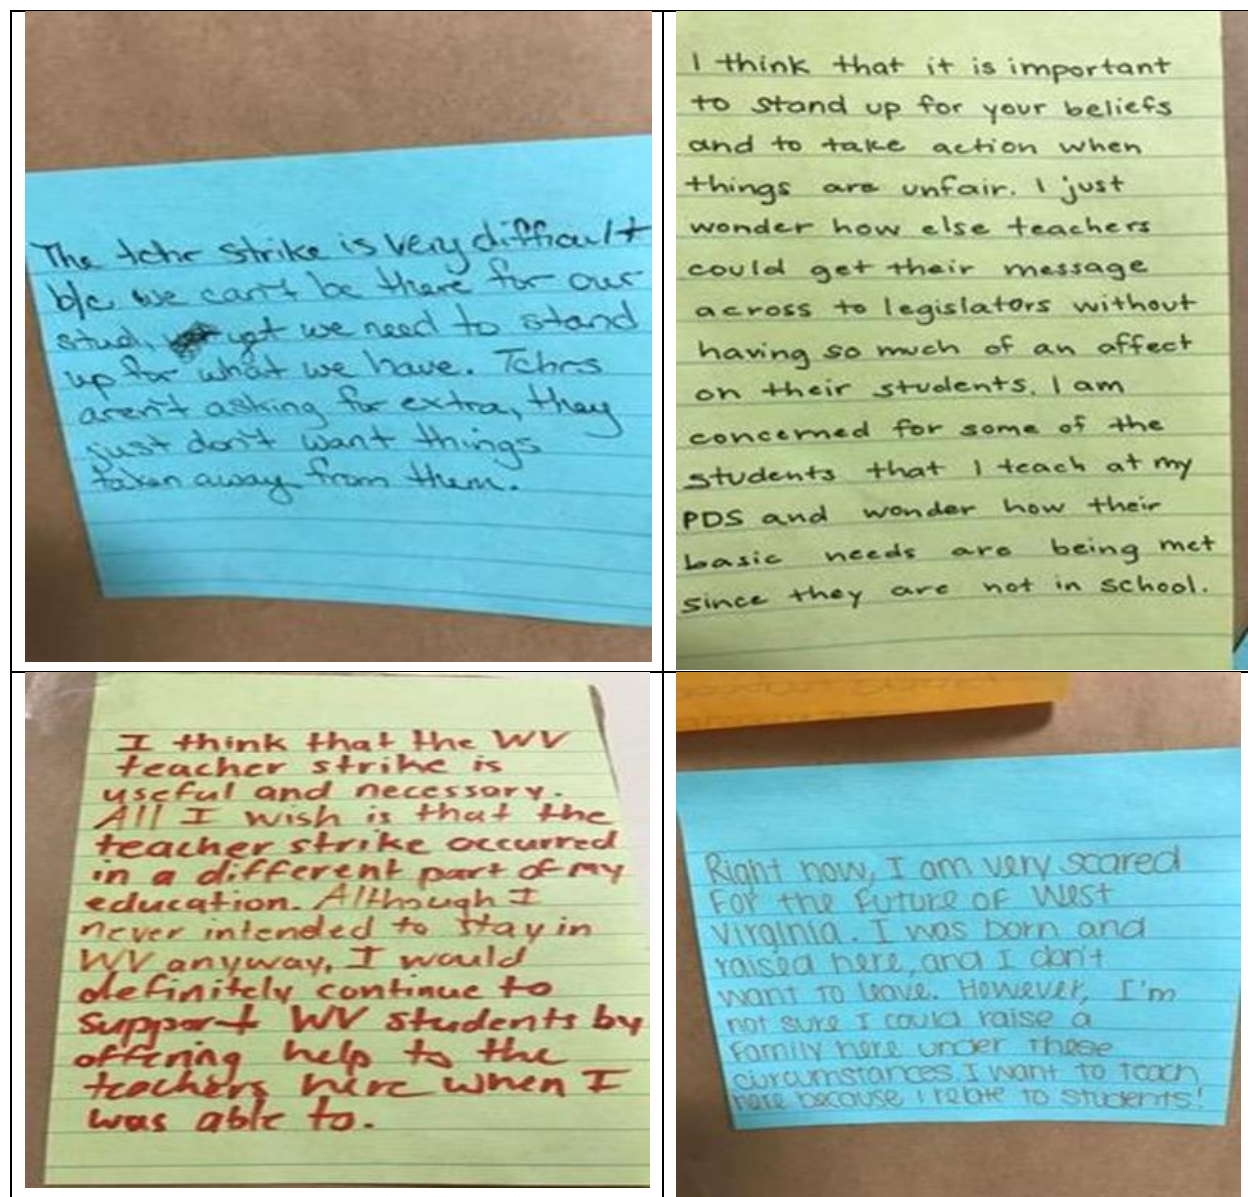 The tchr strike is very difficult
b/c we can't be there for our
stud, yet we need to stand
up for what we have. Tchrs
aren't asking for extra, they
just don't want things
taken away from them.
I think that it is important
to stand up for your beliefs
and to take action when
things are unfair. I just
wonder how else teachers
could get their message
across to legislators without
having so much of an affect
on their students. I am
concerned for some of the
students that I teach at my
PDS and wonder how their
basic needs are being met
since they are not in school.
I think that the WV
teacher strike is
useful and necessary.
All I wish is that the
teacher strike occurred
in a different part of my
education. Although I
never intended to stay in
WV anyway, I would
definitely continue to
support WV students by
offering help to the
teachers here when I
was able to.
Right now, I am very scared
for the future of West
Virginia. I was born and
raised here, and I don't
want to leave. However, I'm
not sure I could raise a
family here under these
circumstances. I want to teach
here because I relate to students!